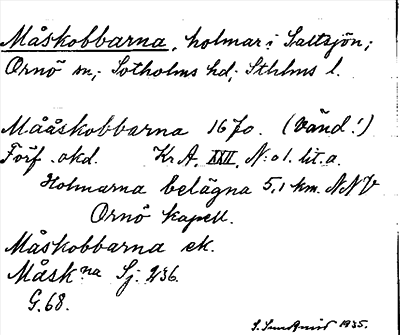 Måskobbarna, holmar i Saltsjön;
Ornö sn; Sotholms hd; Sthlms l.
Mååskobbarna 1670. (Vänd!)
Förf. okd. Kr A. XXII, N:o 1. lit. a.
Holmarna belägna 5,1 km. NNV
Ornö kapell.
Måskobbarna ek.
Måsk na Sj. 236.
G. 68.
1935.